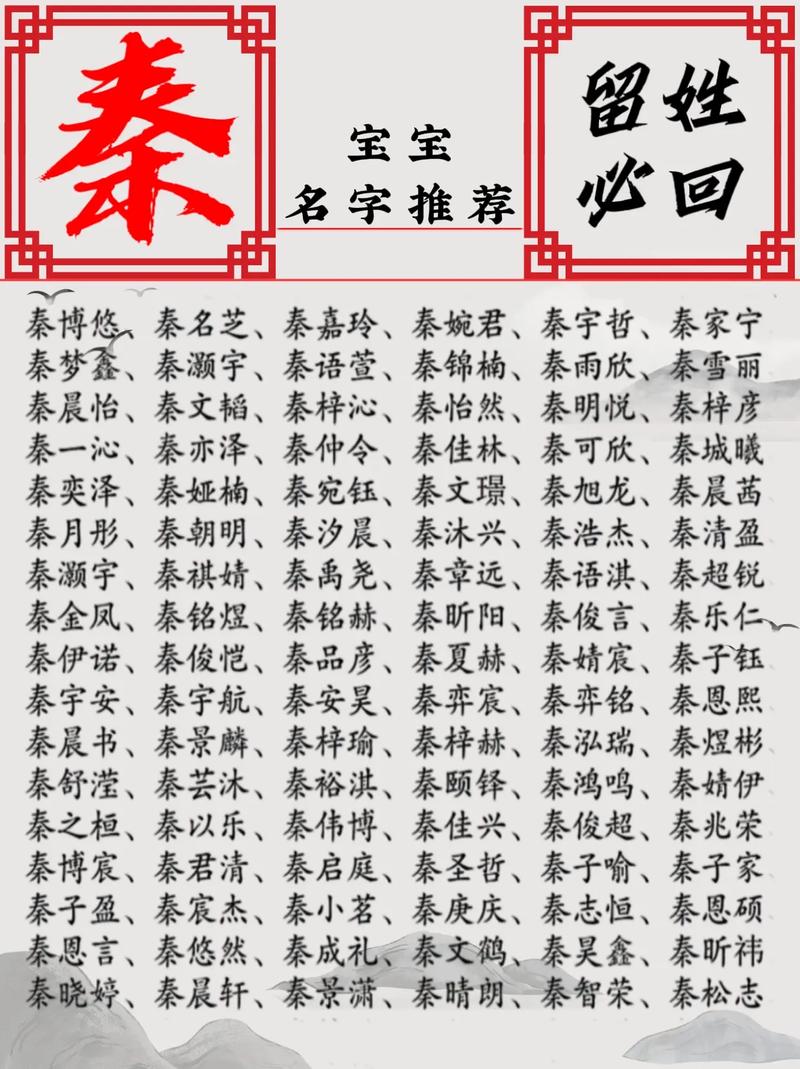 秦
宝宝
名字推荐
留姓
必回
秦博悠、秦名芝、秦嘉玲、秦婉君、秦宇哲、秦家宁
秦梦鑫、秦灏宇、秦语萱、秦锦楠、秦雨欣、秦雪丽
秦晨怡、秦文韬、秦梓沁、秦怡然、秦明悦、秦梓彦
秦一沁、秦亦泽、秦仲令、秦佳林、秦可欣、秦城曦
秦奕泽、秦娅楠、秦宛钰、秦文璟、秦旭龙、秦晨茜
秦月彤、秦朝明、秦汐晨、秦沐兴、秦浩杰、秦清盈
秦灏宇、秦祺婧、秦禹尧、秦章远、秦语淇、秦超锐
秦金凤、秦铭煜、秦铭赫、秦昕阳、秦俊言、秦乐仁
秦伊诺、秦俊恺、秦品彦、秦夏赫、秦婧宸、秦子钰
秦宇安、秦宇航、秦安昊、秦弈宸、秦弈铭、秦恩熙
秦晨书、秦景麟、秦梓瑜、秦梓赫、秦泓瑞、秦煜彬
秦舒滢、秦芸沐、秦裕淇、秦颐铎、秦鸿鸣、秦婧伊
秦之桓、秦以乐、秦伟博、秦佳兴、秦俊超、秦兆荣
秦博宸、秦君清、秦启庭、秦圣哲、秦子喻、秦子家
秦子盈、秦宸杰、秦小茗、秦庚庆、秦志恒、秦恩硕
秦恩言、秦悠然、秦成礼、秦文鹤、秦昊鑫、秦昕祎
秦晓婷、秦晨轩、秦景潇、秦晴朗、秦智荣、秦松志